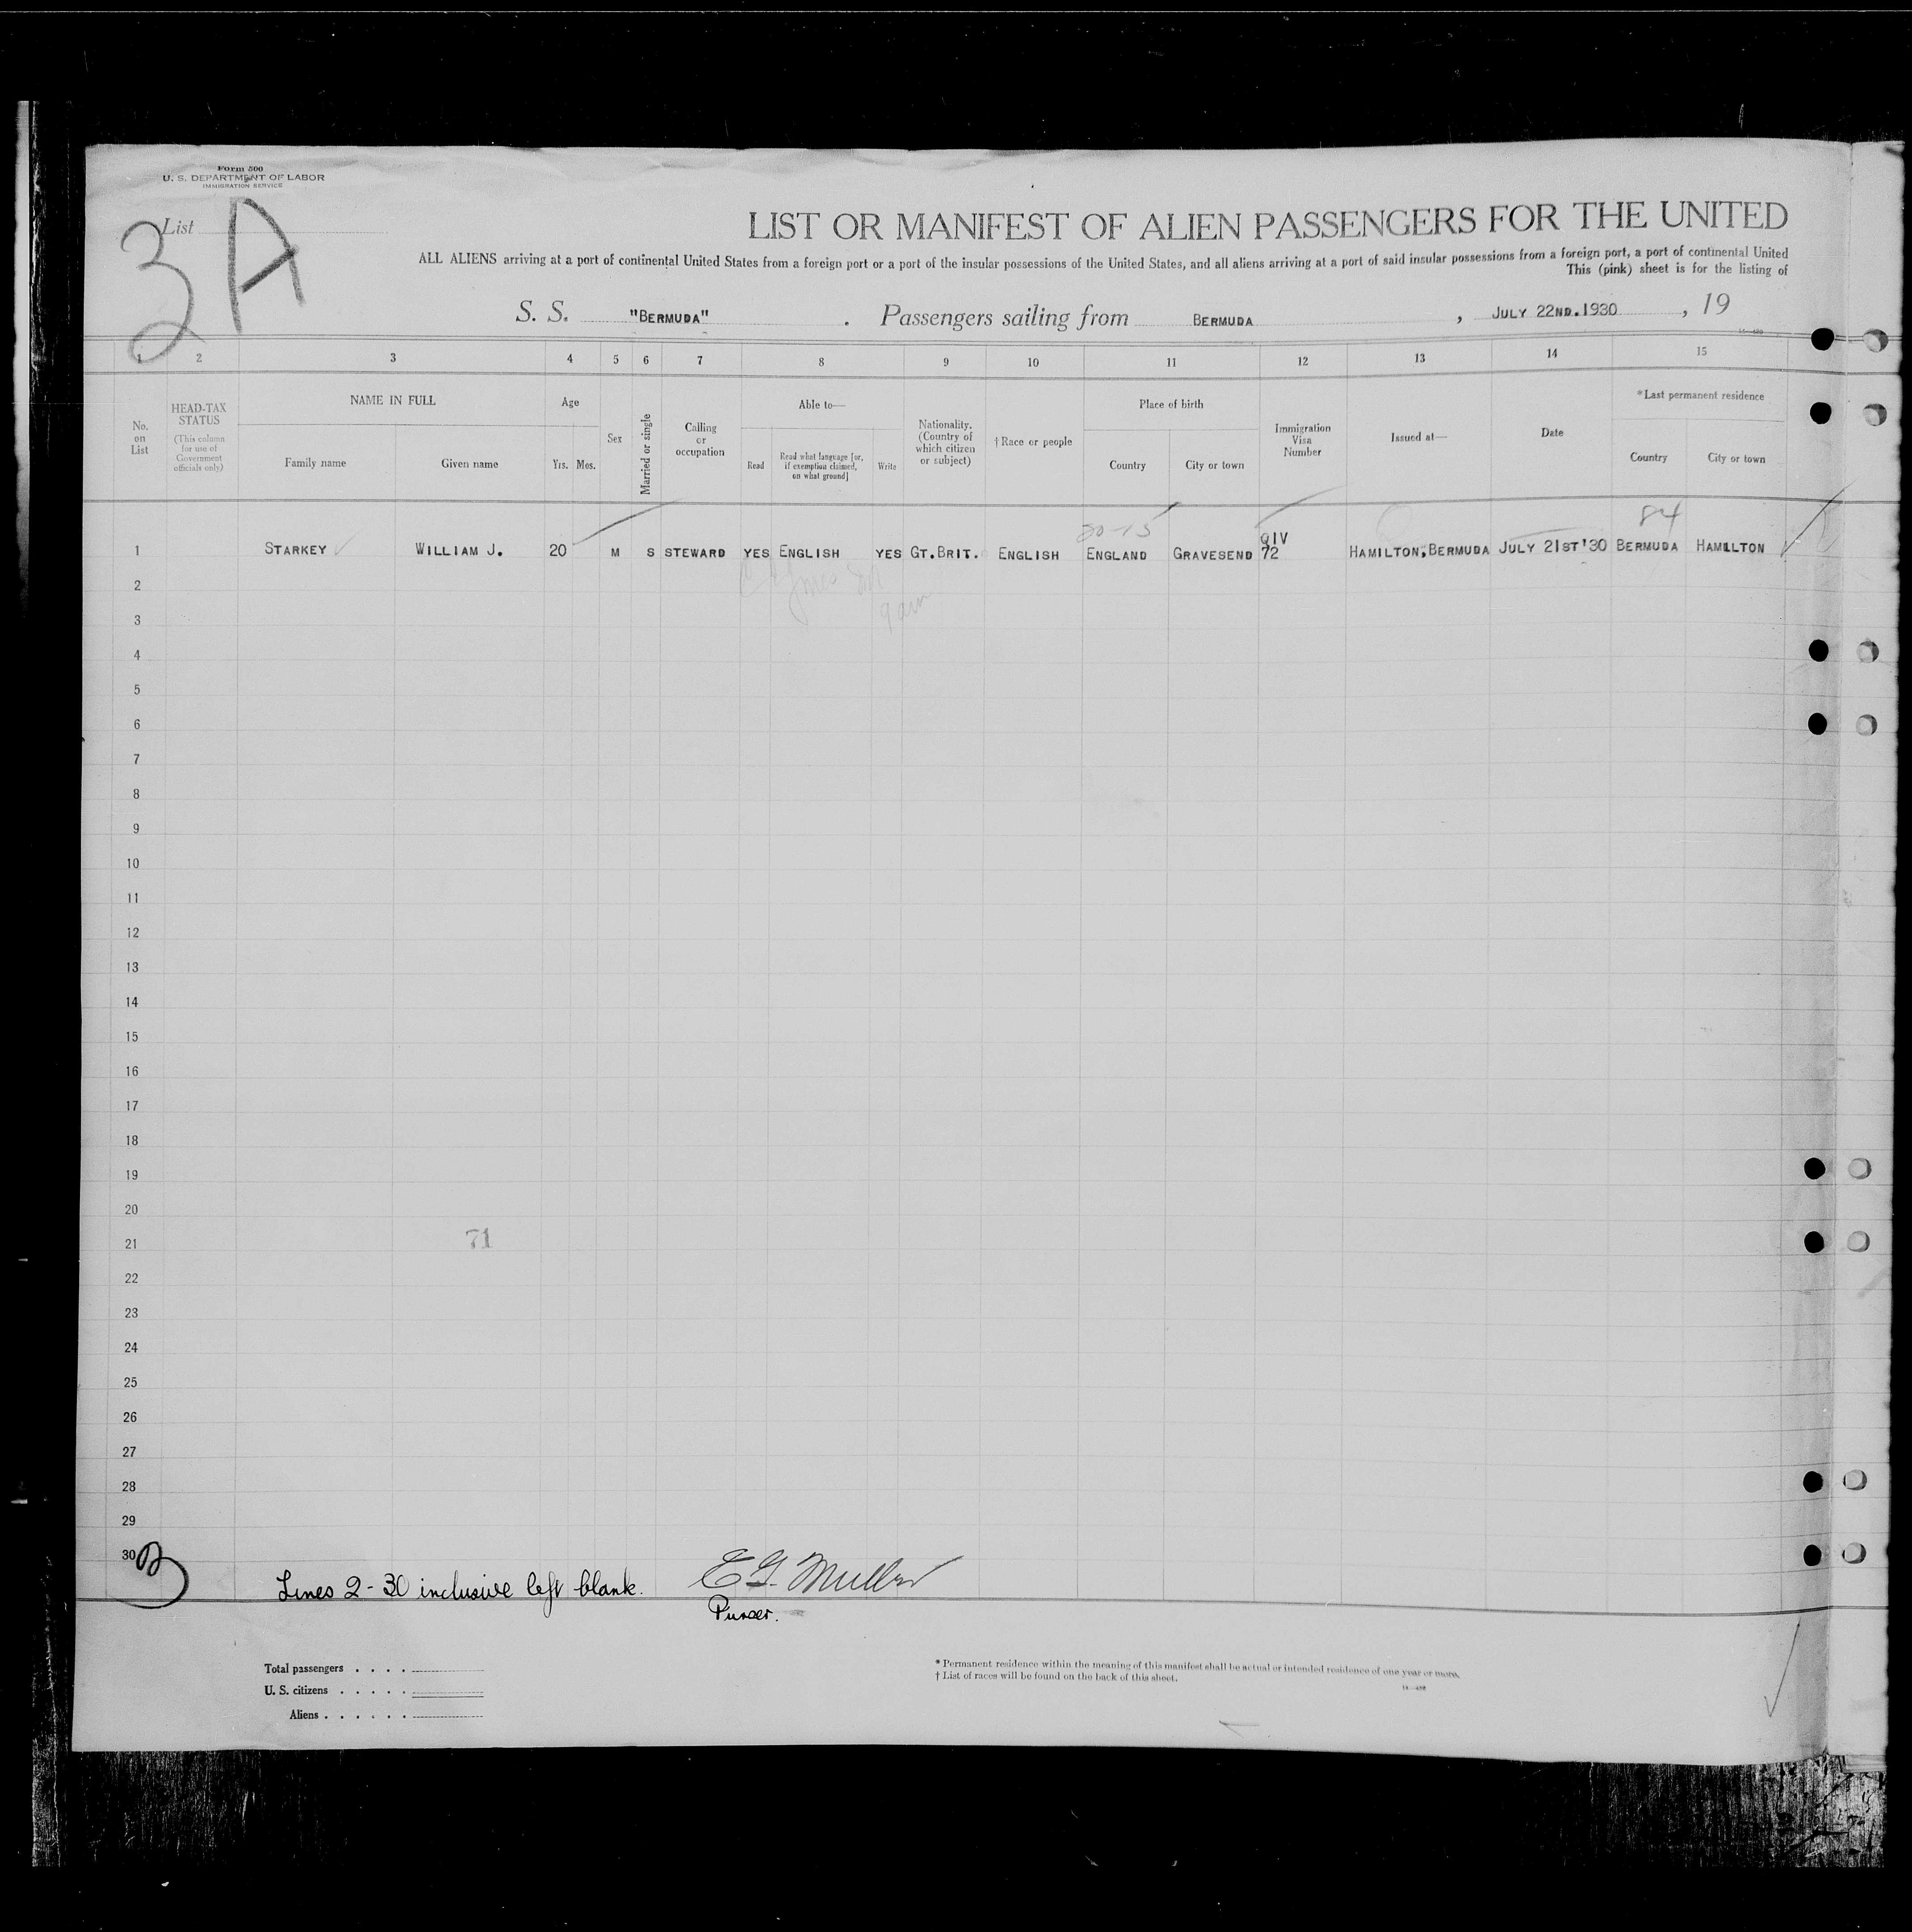 Form 500
U. S. DEPARTMENT OF LABOR
IMMIGRATION SERVICE
List
3 A
LIST OR MANIFEST OF ALIEN PASSENGERS FOR THE UNITED
ALL ALIENS arriving at a port of continental United States from a foreign port or a port of the insular possessions of the United States, and all aliens arriving at a port of said insular possessions from a foreign port, a port of continental United
This (pink) sheet is for the listing of
S. S. "BERMUDA". Passengers sailing from BERMUDA, JULY 22ND.1930, 19
1 2 3 4 5 6 7 8 9 10 11 12 13 14 15
No. on List
HEAD-TAX STATUS
(This column for use of Government officials only)
NAME IN FULL
Family name Given name
Age
Yrs. Mos.
Sex
Married or single
Calling or occupation
Able to—
Read
Read what language [or, if exemption claimed, on what ground]
Write
Nationality. (Country of which citizen or subject)
† Race or people
Place of birth
Country City or town
Immigration Visa Number
Issued at—
Date
* Last permanent residence
Country City or town
20-15
84
1 STARKEY WILLIAM J. 20 M S STEWARD YES ENGLISH YES GT.BRIT. ENGLISH ENGLAND GRAVESEND QIV 72 HAMILTON,BERMUDA JULY 21ST'30 BERMUDA HAMILTON
2
3
4
5
6
7
8
9
10
11
12
13
14
15
16
17
18
19
20
71
21
22
23
24
25
26
27
28
29
30
Lines 2-30 inclusive left blank. E G. Muller
Purser.
Total passengers . . . .
U. S. citizens . . . . .
Aliens . . . . . .
* Permanent residence within the meaning of this manifest shall be actual or intended residence of one year or more.
† List of races will be found on the back of this sheet.